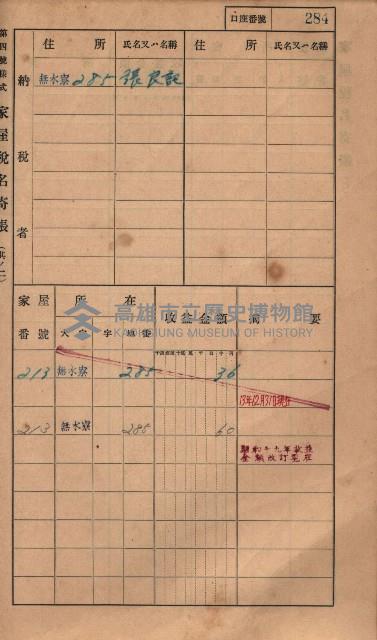 口座番號 284
第四號樣式 家屋稅名寄帳(其ノ一)
納稅者
住所 氏名又ハ名稱 住所 氏名又ハ名稱
無水寮 285 張良記
家屋番號 所在 收益金額 摘要
大字 字 地番
213 無水寮 285 36
13年12月31日現在
213 無水寮 285 60
昭和十九年
金額改訂
高雄市立歷史博物館
KAOHSIUNG MUSEUM OF HISTORY